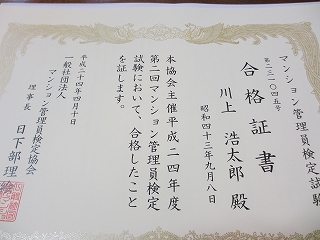 マンション管理員検定試験
第二三一〇〇四五号
合格証書
川上 浩太郎 殿
昭和四十三年九月八日
本協会主催平成二四年度
第二回マンション管理員検定
試験において、合格したこと
を証します。
平成二十四年四月十日
一般社団法人
マンション管理員検定協会
理事長 日下部理絵